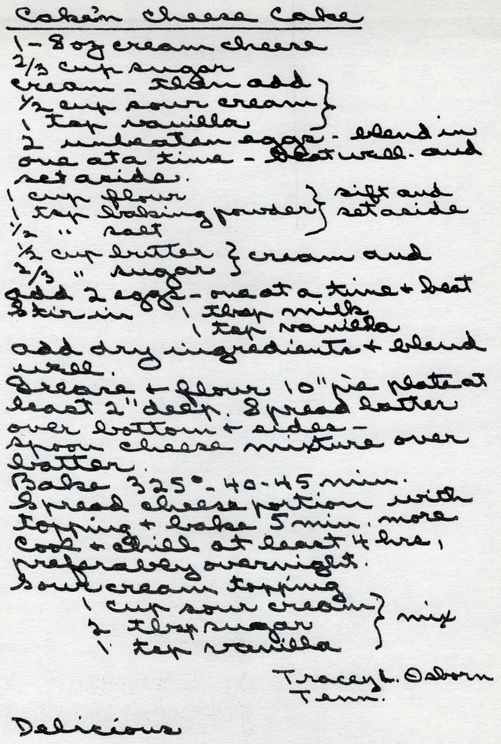 Cake'n Cheese Cake
1 - 8 oz cream cheese
2/3 cup sugar
cream - then add
1/2 cup sour cream
1 tsp vanilla
2 unbeaten eggs - blend in
one at a time - beat well. and
set aside.
1 cup flour
1 tsp baking powder } sift and set aside
1/2 " salt
1/2 cup butter } cream and
2/3 " sugar
add 2 eggs - one at a time + beat
Stir in 1 tbsp milk
1 tsp vanilla
add dry ingredients + blend
well.
Grease + flour 10" pie plate at
least 2" deep. Spread batter
over bottom + sides -
spoon cheese mixture over
batter.
Bake 325° - 40-45 min.
Spread cheese portion with
topping + bake 5 min. more
Cool + chill at least 4 hrs,
preferably overnight.
Sour cream topping
1 cup sour cream
2 tbsp sugar } mix
1 tsp vanilla
Tracey L. Osborn
Tenn.
Delicious